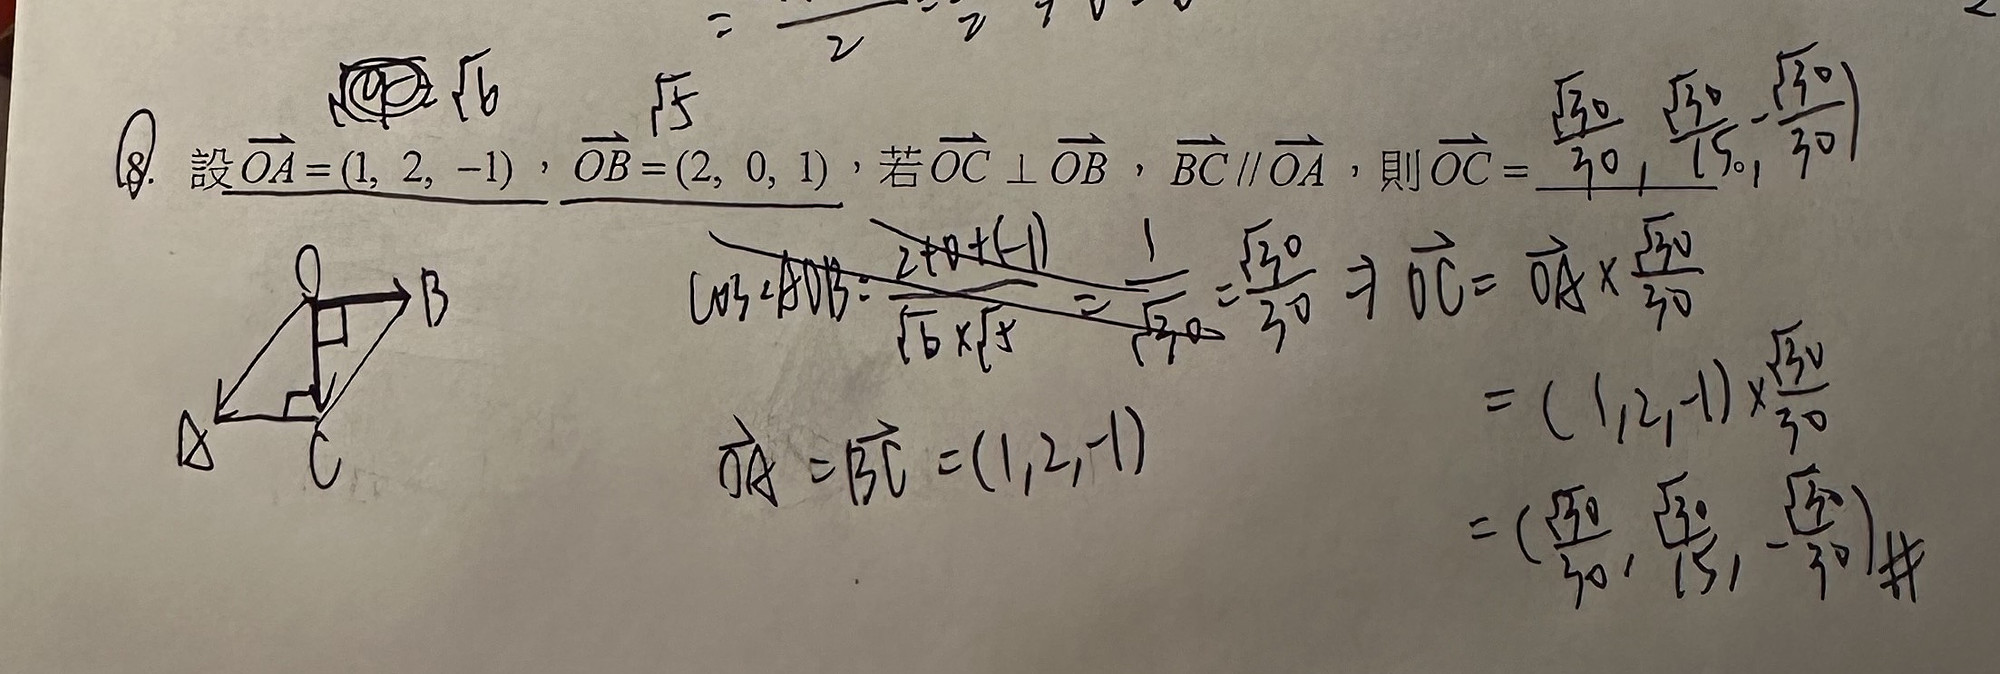 = 2 = 2
√6 √5
8. 設 OA = (1, 2, −1),OB = (2, 0, 1),若 OC ⊥ OB,BC // OA,則 OC = √30/30, √30/15, -√30/30)。
O B A C
cos∠AOB = 2+0+(-1)/√6×√5 = 1/√30 = √30/30 ⇒ OC = OA × √30/30
= (1,2,-1) × √30/30
OA = BC = (1,2,-1)
= (√30/30, √30/15, -√30/30) #